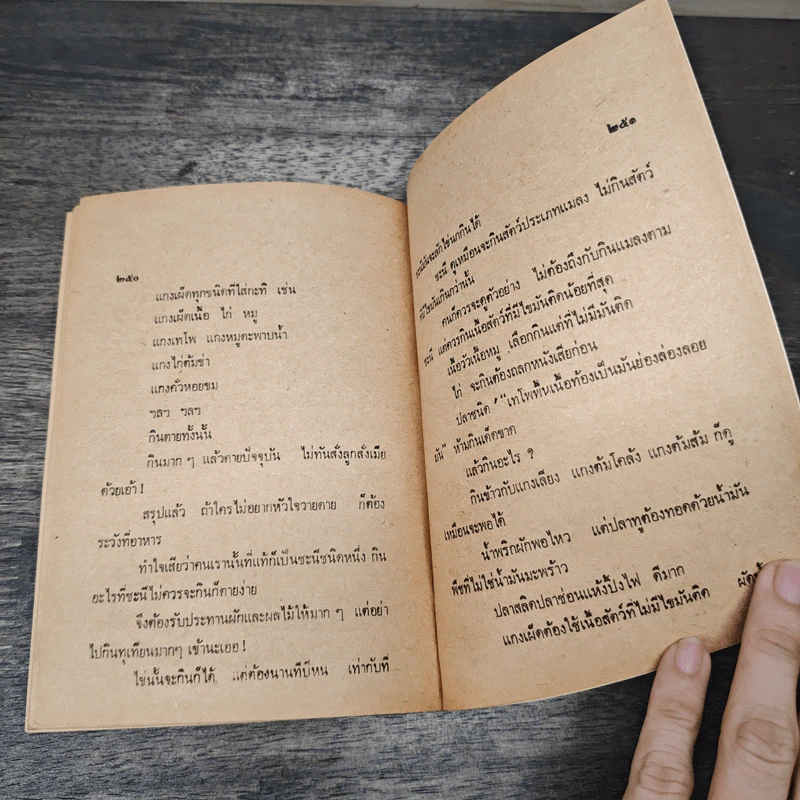 ๒๕๐
แกงเผ็ดทุกชนิดที่ใส่กะทิ เช่น
แกงเผ็ดเนื้อ ไก่ หมู
แกงเทโพ แกงหมูตะพาบน้ำ
แกงไก่ต้มข่า
แกงคั่วหอยขม
ฯลฯ ฯลฯ
กินตายทั้งนั้น
กินมาก ๆ แล้วตายปัจจุบัน ไม่ทันสั่งลูกสั่งเมีย
ด้วยเอ้า !
สรุปแล้ว ถ้าใครไม่อยากหัวใจวายตาย ก็ต้อง
ระวังที่อาหาร
ทำใจเสียว่าคนเรานั้นที่แท้ก็เป็นชะนีชนิดหนึ่ง กิน
อะไรที่ชะนีไม่ควรจะกินก็ตายง่าย
จึงต้องรับประทานผักและผลไม้ให้มาก ๆ แต่อย่า
ไปกินทุเรียนมากๆ เข้านะเออ !
ไข่นั้นจะกินก็ได้ แต่ต้องนานทีปีหน เท่ากับที่
๒๕๑
ชะนีมันจะลักไข่นกกินได้
ชะนี ดูเหมือนจะกินสัตว์ประเภทแมลง ไม่กินสัตว์
ที่มีไขมันเกินกว่านั้น
คนก็ควรจะดูตัวอย่าง ไม่ต้องถึงกับกินแมลงตาม
ชะนี แต่ควรกินเนื้อสัตว์ที่มีไขมันติดน้อยที่สุด
เนื้อวัวเนื้อหมู เลือกกินแต่ที่ไม่มีมันติด
ไก่ จะกินต้องถลกหนังเสียก่อน
ปลาชนิด " เทโพพื้นเนื้อท้องเป็นมันย่องล่องลอย
มัน" ห้ามกินเด็ดขาด
แล้วกินอะไร ?
กินข้าวกับแกงเลียง แกงต้มโคล้ง แกงต้มส้ม ก็ดู
เหมือนจะพอได้
น้ำพริกผักพอไหว แต่ปลาทูต้องทอดด้วยน้ำมัน
พืชที่ไม่ใช่น้ำมันมะพร้าว
ปลาสลิดปลาช่อนแห้งปิ้งไฟ ดีมาก
แกงเผ็ดต้องใช้เนื้อสัตว์ที่ไม่มีไขมันติด